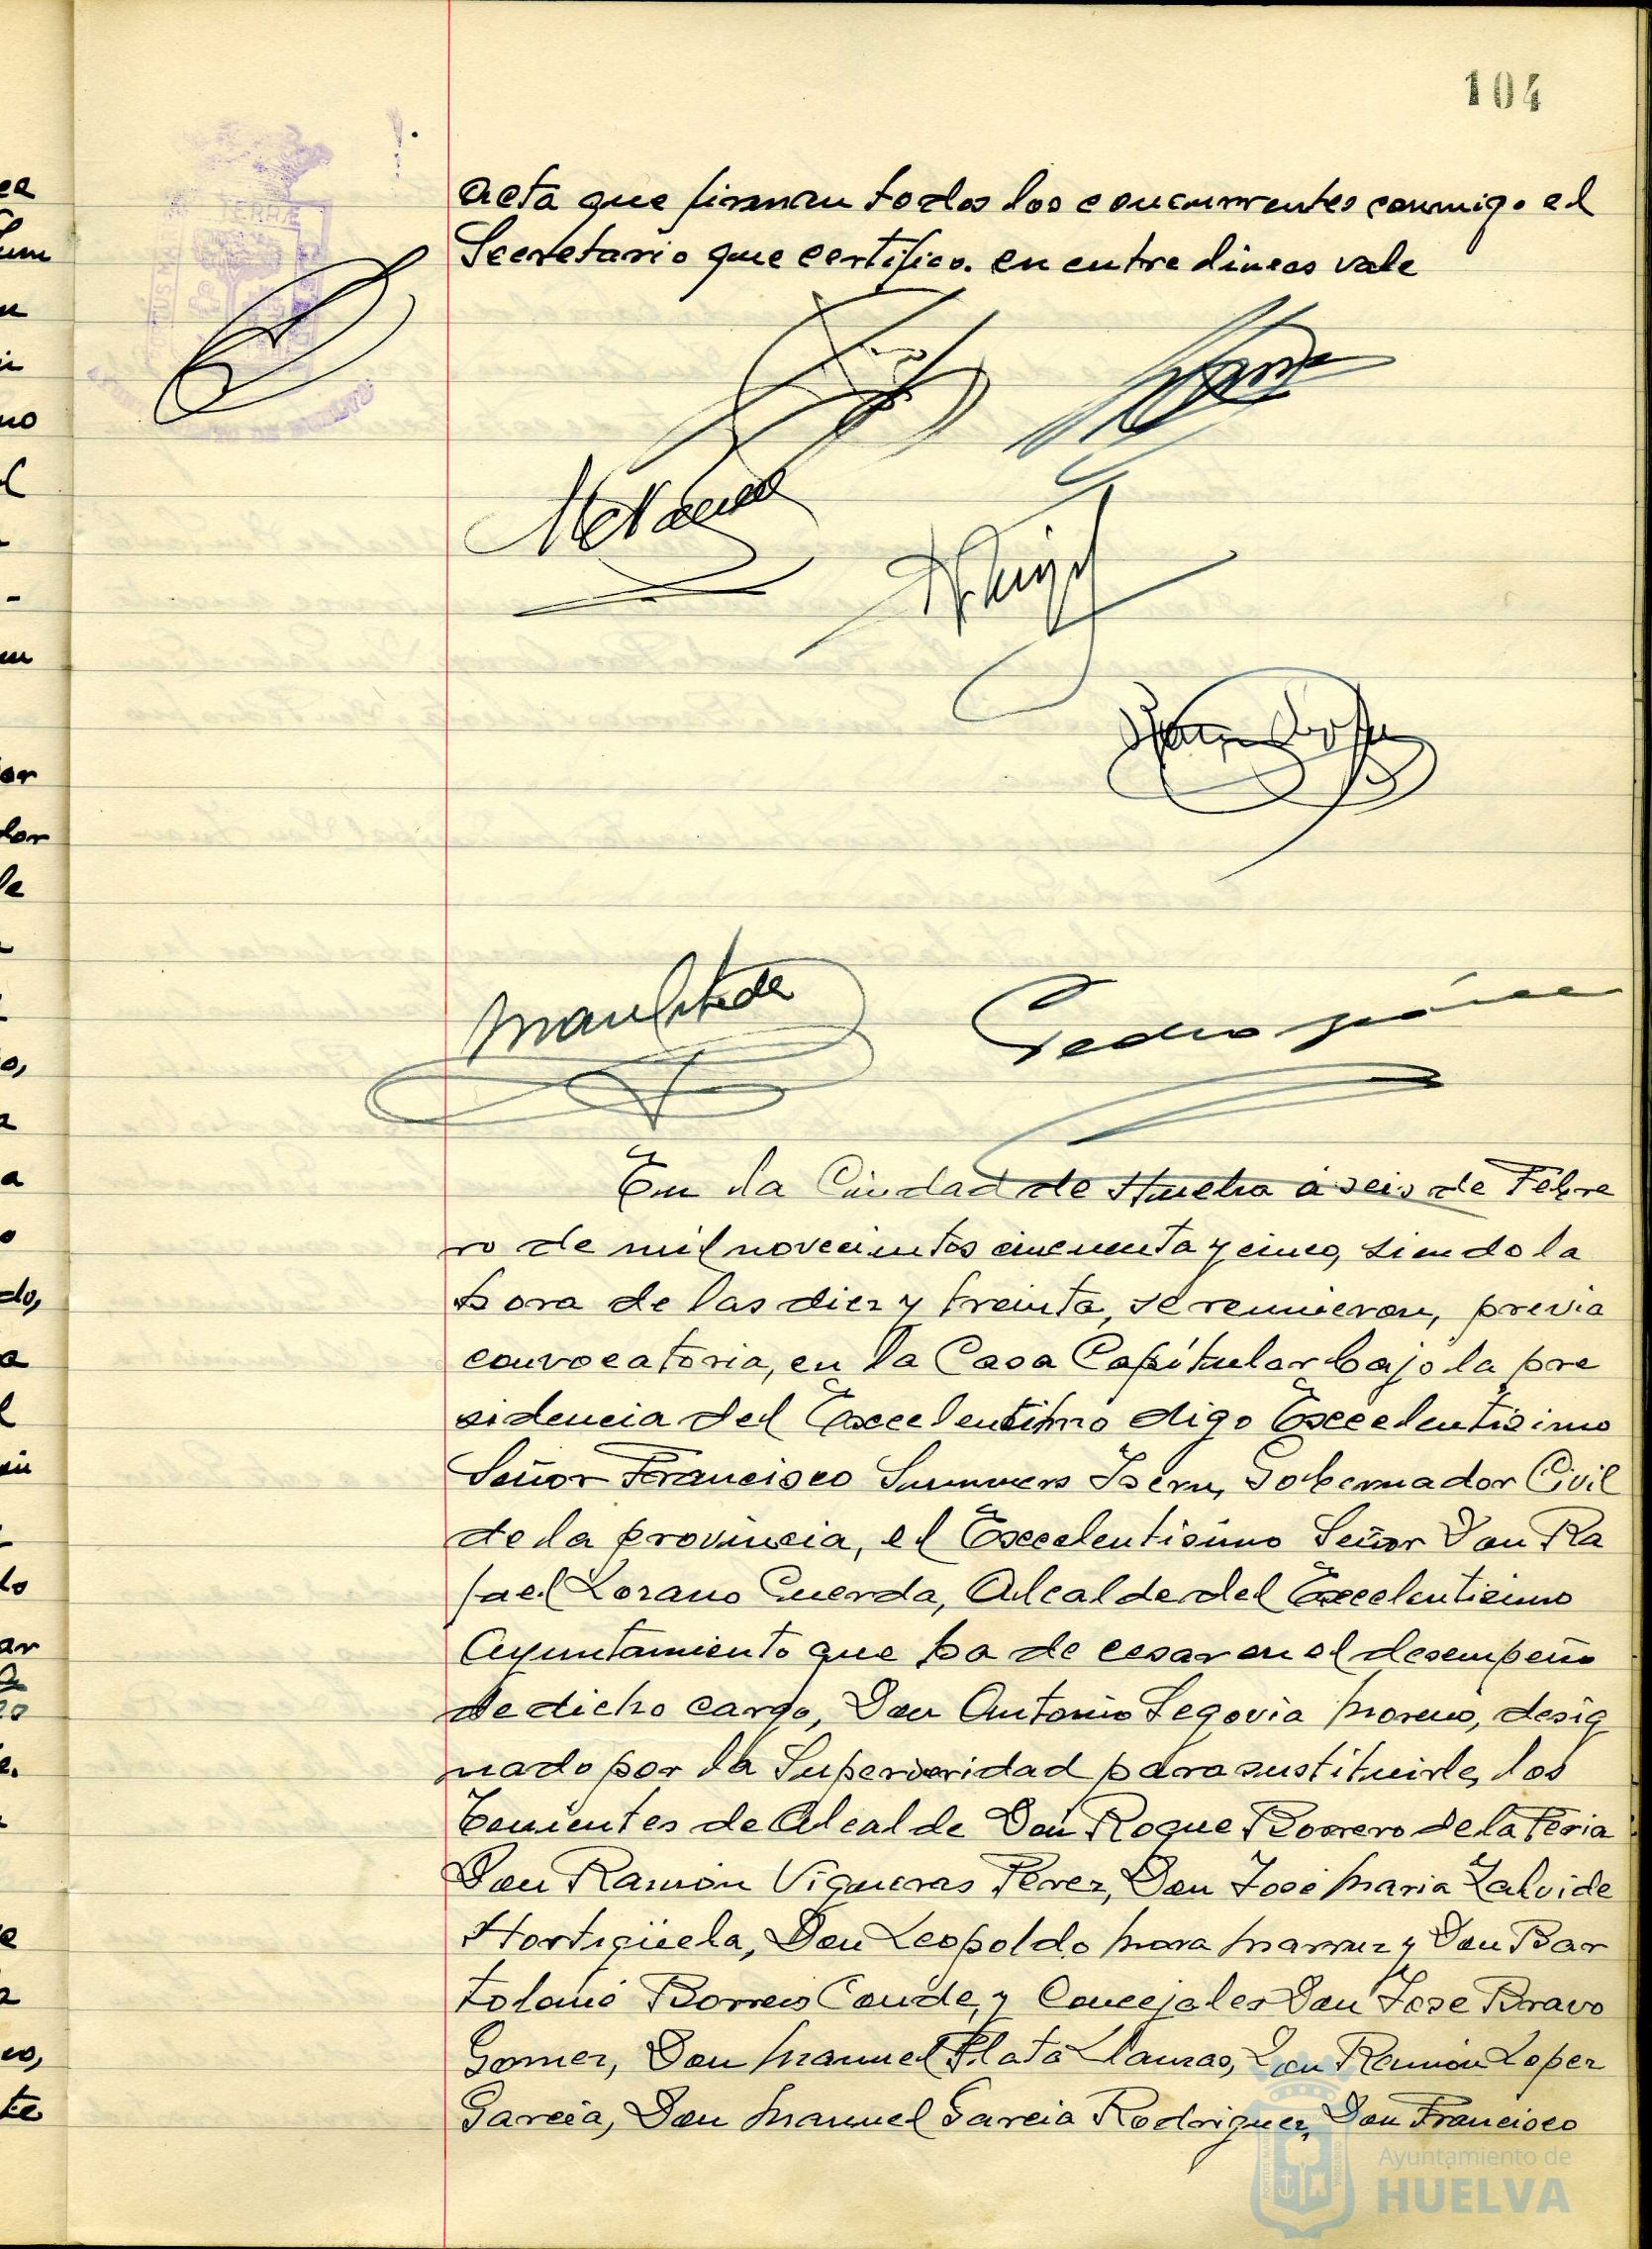 104
acta que firman todos los concurrentes conmigo el
Secretario que certifico. en entre lineas vale
TERRÆ
Pedro
En la Ciudad de Huelva a seis de Febre
ro de mil novecientos cincuenta y cinco, siendo la
hora de las diez y treinta, se reunieron, previa
convocatoria, en la Casa Capitular bajo la pre
sidencia del Excelentisimo digo Excelentisimo
Señor Francisco Summers Isern, Gobernador Civil
de la provincia, el Excelentisimo Señor Don Ra
fael Lozano Cuerda, Alcalde del Excelentisimo
Ayuntamiento que ha de cesar en el desempeño
de dicho cargo, Don Antonio Segovia Moreno, desig
nado por la Superioridad para sustituirle, los
Tenientes de Alcalde Don Roque Romero de la Feria
Don Ramón Vigueras Perez, Don José Maria Zalvide
Hortigüela, Don Leopoldo Mora y Don Bar
tolomé Borrero Conde, y Concejales Don Jose Bravo
Gomez, Don Manuel Plata Llanzas, Don Ramón Lopez
Garcia, Don Manuel Garcia Rodriguez, Don Francisco
Ayuntamiento de
HUELVA